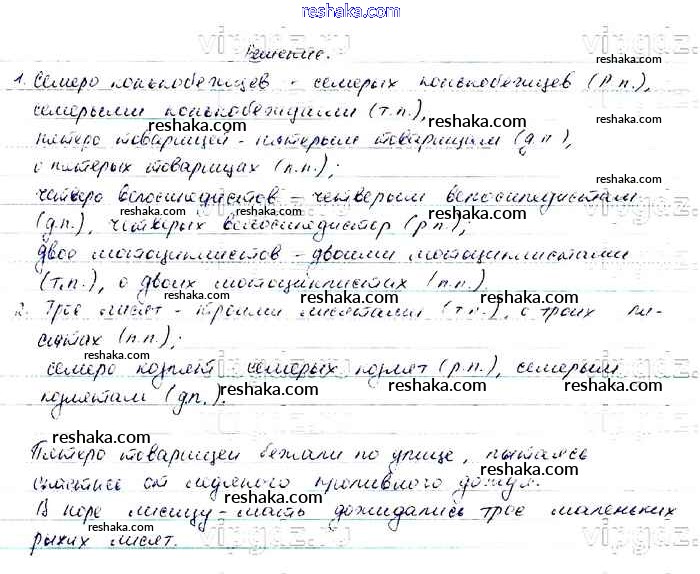 reshaka.com
Решение.
1. Семеро конькобежцев - семерых конькобежцев (Р.п.),
семерыми конькобежцами (т.п.),
пятеро товарищей - пятерым товарищам (д.п.),
о пятерых товарищах (п.п.);
четверо велосипедистов - четверым велосипедистам
(д.п.), четверых велосипедистов (р.п.);
двое мотоциклистов - двоими мотоциклистами
(т.п.), о двоих мотоциклистах (п.п.)
2. Трое лисят - троими лисятами (т.п.), о троих ли-
сятах (п.п.);
семеро козлят - семерых козлят (р.п.), семерым
козлятам (дп.).
Пятеро товарищей бежали по улице, пытаясь
спастись от медленного проливного дождя.
В норе лисицу-мать дожидались трое маленьких
рыжих лисят.